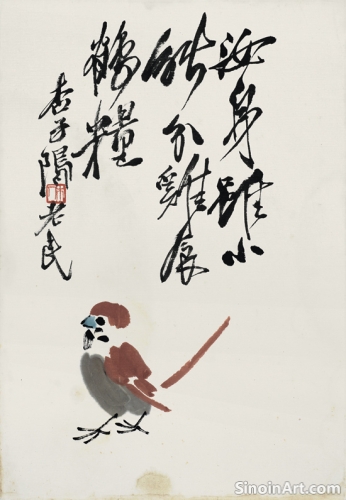 汝身雖小
能分雞食
鶴糧
杏子隖老民
SinoinArt.com